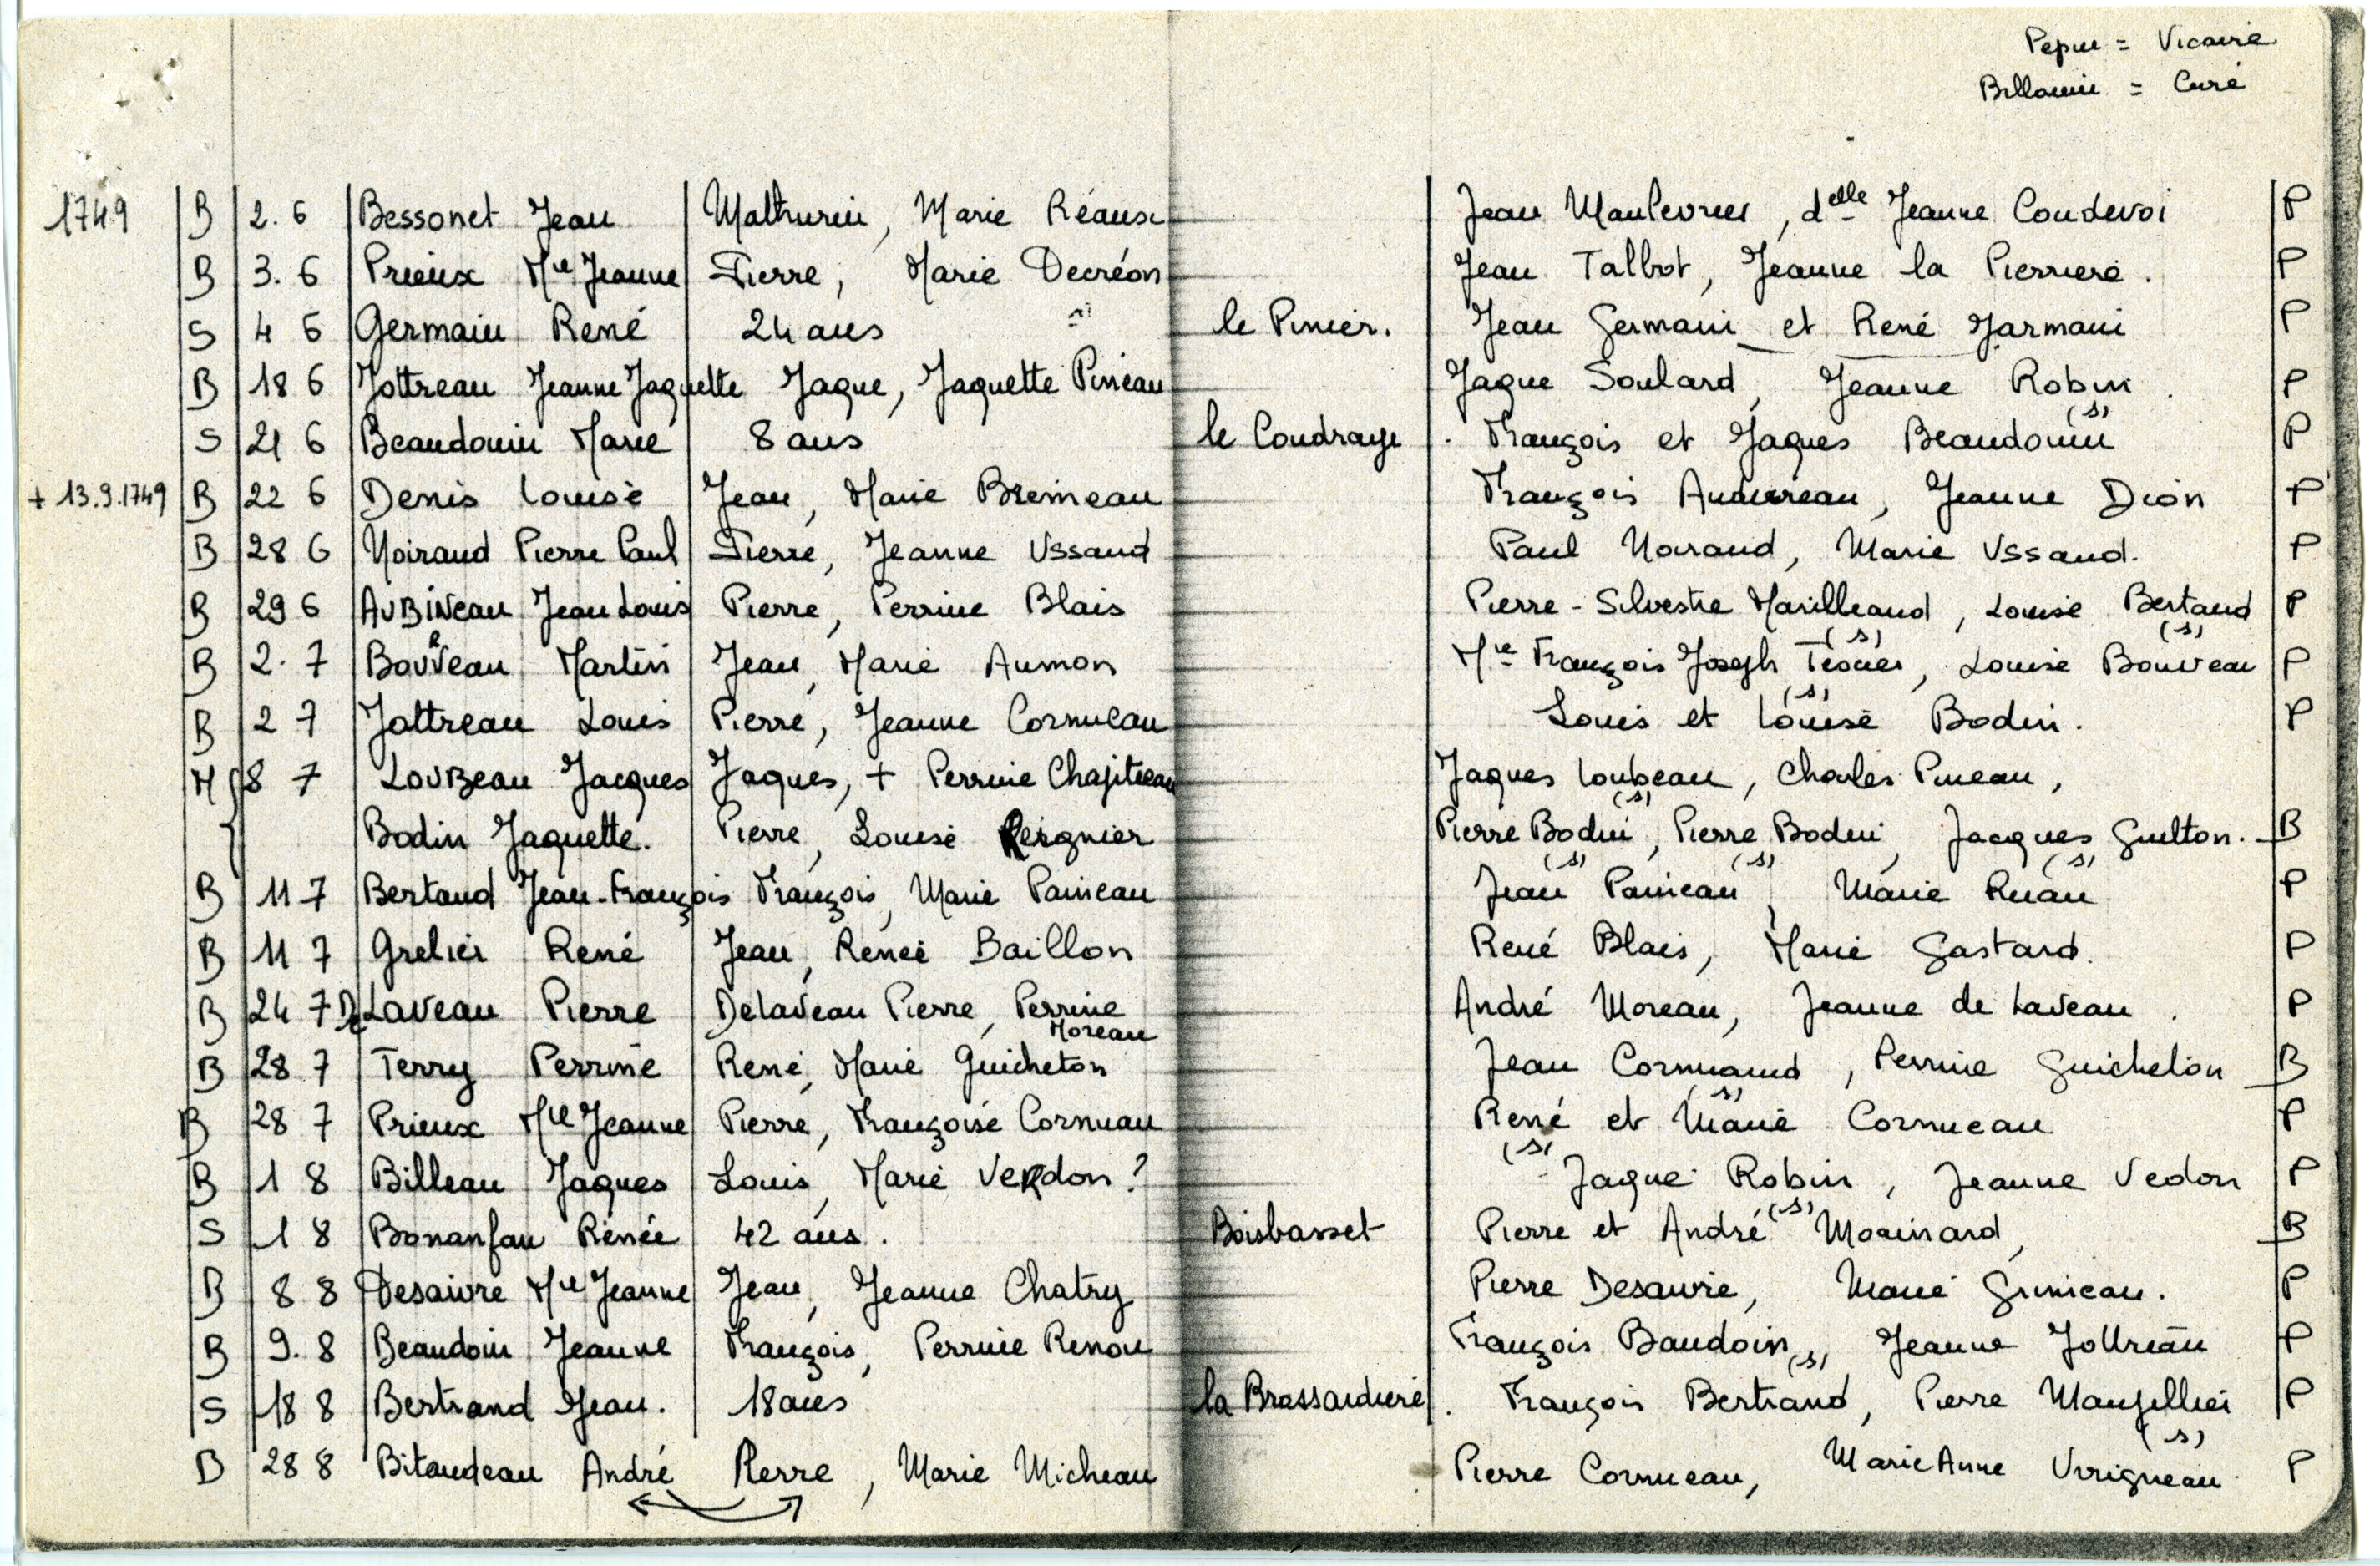 Pepin = Vicaire
Billouin = Curé
1749 B 2.6 Bessonet Jean Mathurin, Marie Réaux Jean Maulevrier, delle Jeanne Coudevoi P
B 3.6 Prieux Mie Jeanne Pierre, Marie Decréon Jean Talbot, Jeanne la Pierriere. P
S 4 6 Germain René 24 ans le Pinier. Jean Germain et René Jarmain P
B 18 6 Jottreau Jeanne Jaquette Jaque, Jaquette Pineau Jaque Soulard, Jeanne Robin. P
S 21 6 Beaudouin Marie 8 ans le Coudraye. François et Jaques Beaudouin (s) P
+ 13.9.1749 B 22 6 Denis Louise Jean, Marie Bremeau François Audureau, Jeanne Dion P
B 28 6 Noiraud Pierre Paul Pierre, Jeanne Ussaud Paul Noiraud, Marie Ussaud. P
B 29 6 AUBINeau Jean Louis Pierre, Perrine Blais Pierre-Silvestre Marilleaud, Louise Bertaud P
B 2.7 Bouveau Martin Jean, Marie Aumon Mre François Joseph (s), Louise Bouveau (s) P
B 2 7 Jottreau Louis Pierre, Jeanne Cornueau Louis et Louise (s) Bodin. P
M 8 7 LouBeau Jacques Jaques, + Perrine Chapiteau Jaques Loubeau, Charles Pineau,
Bodin Jaquette. Pierre, Louise Reignier Pierre Bodin (s), Pierre Bodin, Jacques Guilton. B
B 11 7 Bertaud Jean-François François, Marie Panieau Jean (s) Panieau (s), Marie Ruau (s) P
B 11 7 Grelier René Jean, Renée Baillon René Blais, Marie Gastard. P
B 24 7 De Laveau Pierre Delaveau Pierre, Perrine Moreau André Moreau, Jeanne de Laveau. P
B 28.7 Terry Perrine René, Marie Guicheton Jean Cornuaud, Perrine Guicheton B
B 28 7 Prieux Mie Jeanne Pierre, Françoise Cornuau René et Marie (s) Cornueau P
B 1 8 Billeau Jaques Louis, Marie VeRdon? (s) Jaque Robin, Jeanne Vedon P
S 1 8 Bonanfan Renée 42 ans. Boisbasset Pierre et André (s) Moainard, B
B 8 8 Desaivre Mie Jeanne Jean, Jeanne Chatry Pierre Desaivre, Marie Gunieau. P
B 9.8 Beaudoin Jeanne François, Perrine Renou François Baudoin (s), Jeanne Jottreau P
S 18 8 Bertrand Jean. 18 ans la Brossardiere. François Bertrand, Pierre P
B 28 8 Bitaudeau André Pierre, Marie Micheau Pierre Cornueau, Marie Anne Vrigneau (s) P